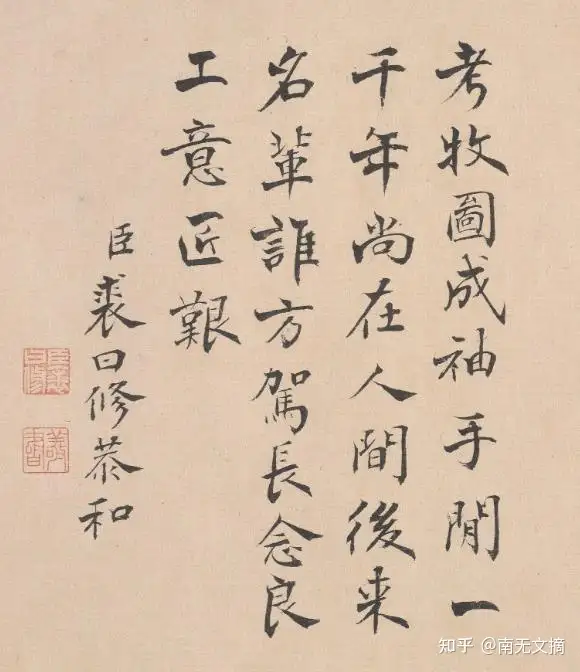 考牧圖成袖手閒一
千年尚在人間後来
名輩誰方駕長念良
工意匠艱
臣裘曰修恭和
知乎 @南无文摘